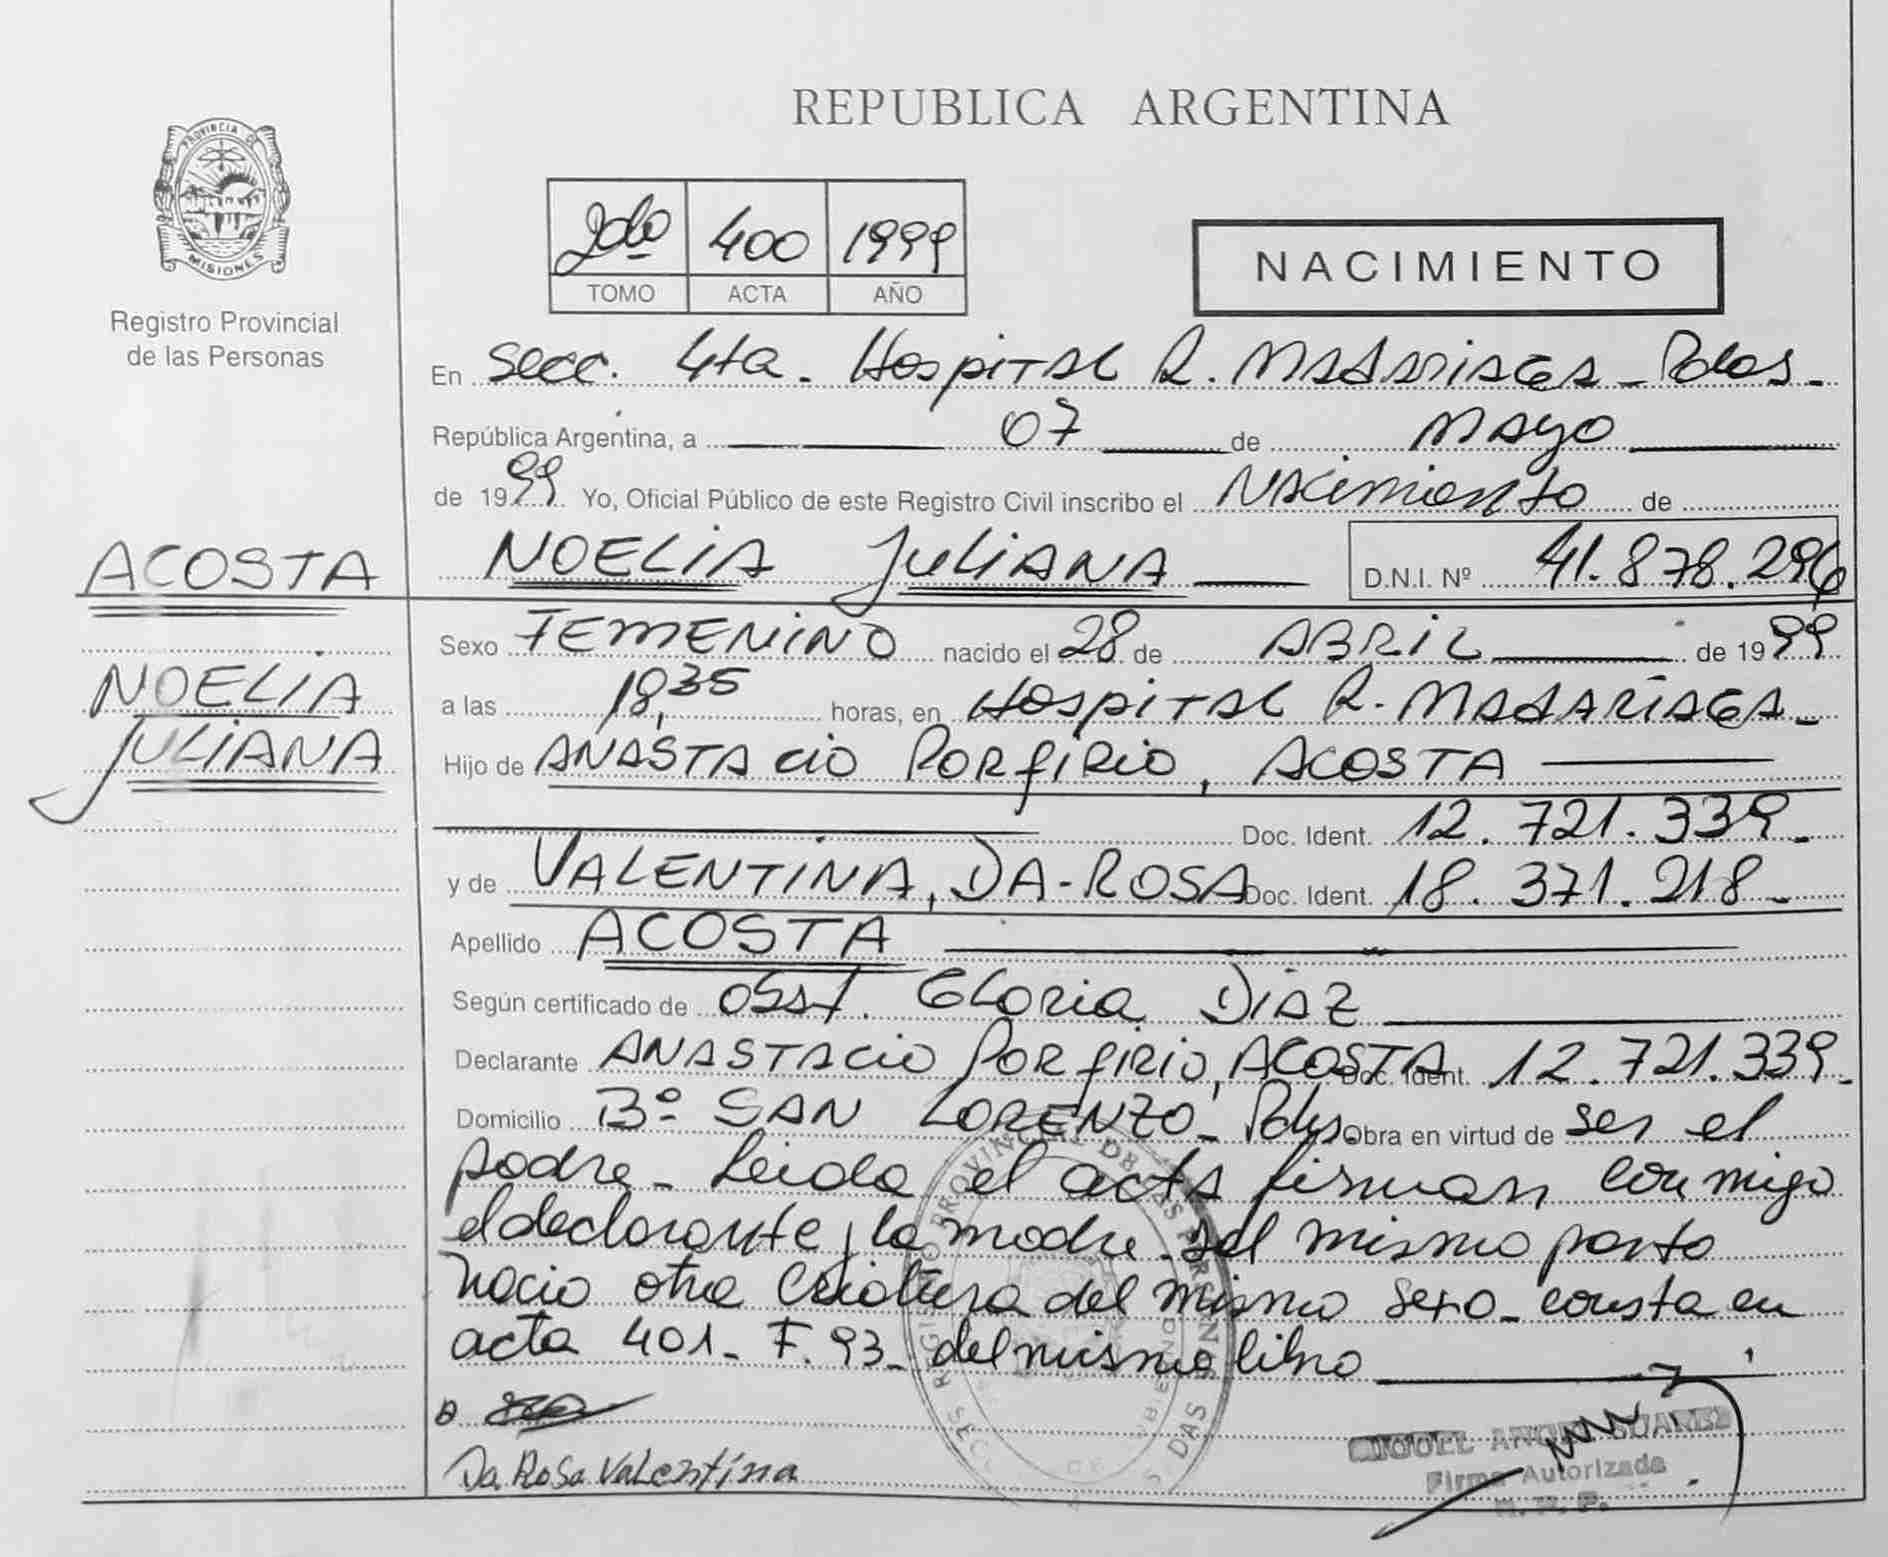 REPUBLICA ARGENTINA
PROVINCIA DE
MISIONES
Registro Provincial
de las Personas
2do 400 1999
TOMO ACTA AÑO
NACIMIENTO
En Secc. 4ta. Hospital R. Madariaga - Pdas.
República Argentina, a 07 de Mayo
de 1999. Yo, Oficial Público de este Registro Civil inscribo el Nacimiento de
ACOSTA
NOELIA JULIANA
NOELIA JULIANA D.N.I. Nº 41.878.296
Sexo FEMENINO nacido el 28 de ABRIL de 1999
a las 18,35 horas, en Hospital R. Madariaga -
Hijo de ANASTAcio PORfIRio, ACOSTA
Doc. Ident. 12.721.339.
y de VALENTINA, DA-ROSA Doc. Ident. 18.371.218.
Apellido ACOSTA
Según certificado de Obst. Gloria Diaz
Declarante ANASTAcio PORfIRio, ACOSTA Doc. Ident. 12.721.339.
Domicilio Bº SAN LORENZO - Pdas. Obra en virtud de ser el
padre - Leida el acta firman conmigo
el declarante y la madre. Del mismo parto
nacio otra criatura del mismo sexo - consta en
acta 401 - F. 93 - del mismo libro
Da Rosa Valentina
MIGUEL ANGEL SUAREZ
Firma Autorizada